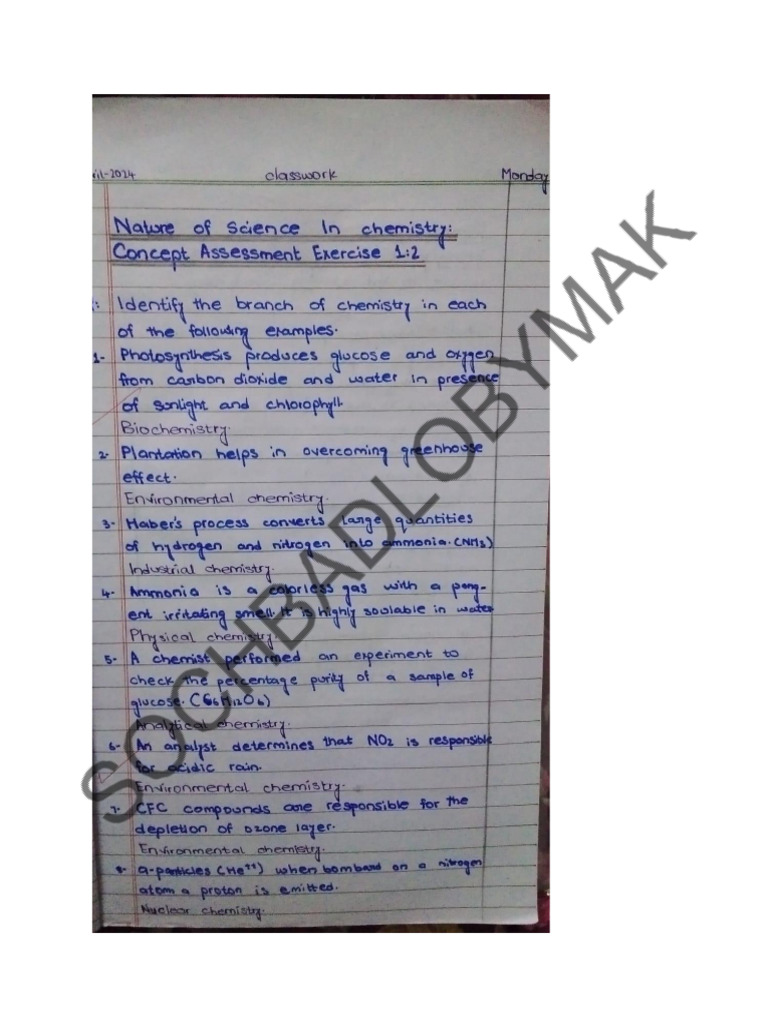 ril-2024 classwork Monday
Nature of Science In chemistry:
Concept Assessment Exercise 1:2
1: Identify the branch of chemistry in each
of the following examples.
1- Photosynthesis produces glucose and oxygen
from carbon dioxide and water in presence
of sunlight and chlorophyll.
Biochemistry.
2- Plantation helps in overcoming greenhouse
effect.
Environmental chemistry.
3- Haber's process converts large quantities
of hydrogen and nitrogen into ammonia. (NH3)
Industrial chemistry.
4- Ammonia is a colorless gas with a pong-
ent irritating smell. It is highly soulable in water
Physical chemistry.
5- A chemist performed an experiment to
check the percentage purity of a sample of
glucose. (C6H12O6)
Analytical chemistry.
6- An analyst determines that NO2 is responsible
for acidic rain.
Environmental chemistry.
7- CFC compounds are responsible for the
depletion of ozone layer.
Environmental chemistry.
8- α-particles (He++) when bombard on a nitrogen
atom a proton is emitted.
Nuclear chemistry.
SOCHBADLOBYMAK